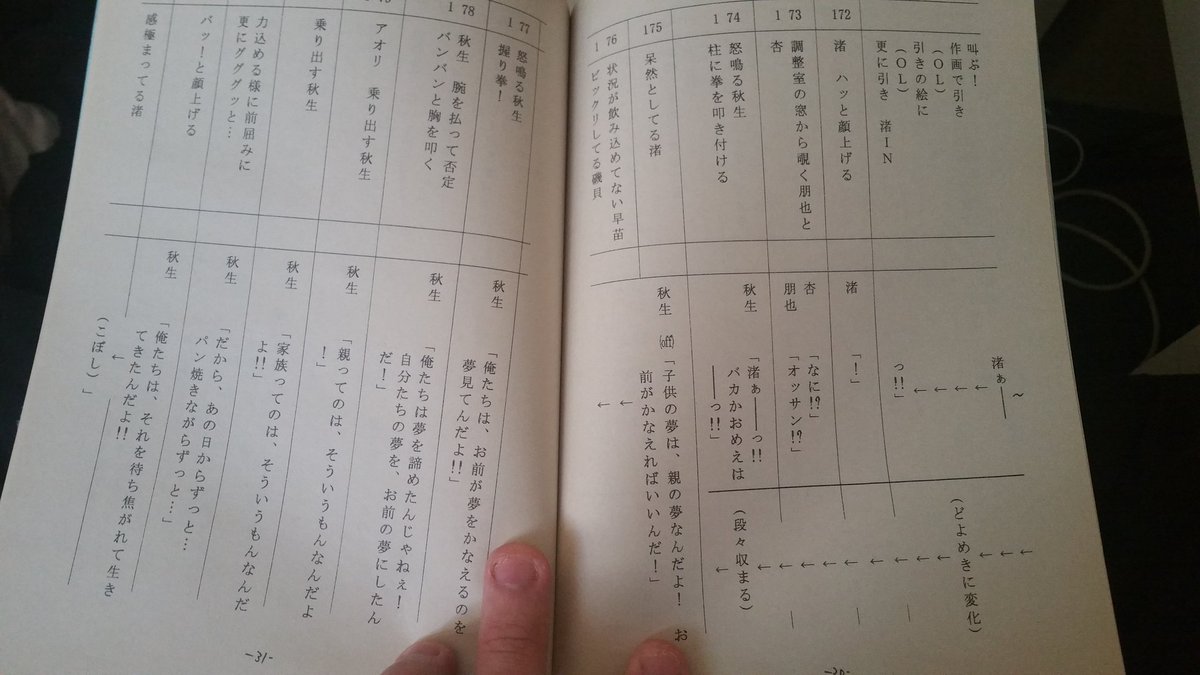 叫ぶ!
作画で引き
(OL)
引きの絵に
(OL)
更に引き 渚IN
渚ぁ――~
← ← ← ←
っ!!」
← ← ←
(どよめきに変化)
← ← ←
172
渚 ハッと顔上げる
渚 「!」
←
173
調整室の窓から覗く朋也と
杏
杏 「なに!?」
朋也 「オッサン!?」
← ←
174
怒鳴る秋生
柱に拳を叩き付ける
秋生 「渚ぁ――っ!!
バカかおめえは
――っ!!」
←
(段々収まる)
←
175
呆然としてる渚
秋生 (off)「子供の夢は、親の夢なんだよ! お
前がかなえればいいんだ!」
176
状況が飲み込めてない早苗
ビックリしてる磯貝
← ←
-30-
177
怒鳴る秋生
握り拳!
秋生 「俺たちは、お前が夢をかなえるのを
夢見てんだよ!!」
178
秋生 腕を払って否定
バンバンと胸を叩く
秋生 「俺たちは夢を諦めたんじゃねぇ!
自分たちの夢を、お前の夢にしたん
だ!」
アオリ 乗り出す秋生
秋生 「親ってのは、そういうもんなんだよ
!」
乗り出す秋生
秋生 「家族ってのは、そういうもんなんだ
よ!!」
力込める様に前屈みに
更にグググッと…
秋生 「だから、あの日からずっと…
パン焼きながらずっと…」
バッ!と顔上げる
秋生 「俺たちは、それを待ち焦がれて生き
てきたんだよ!!
感極まってる渚
←
(こぼし)」
-31-